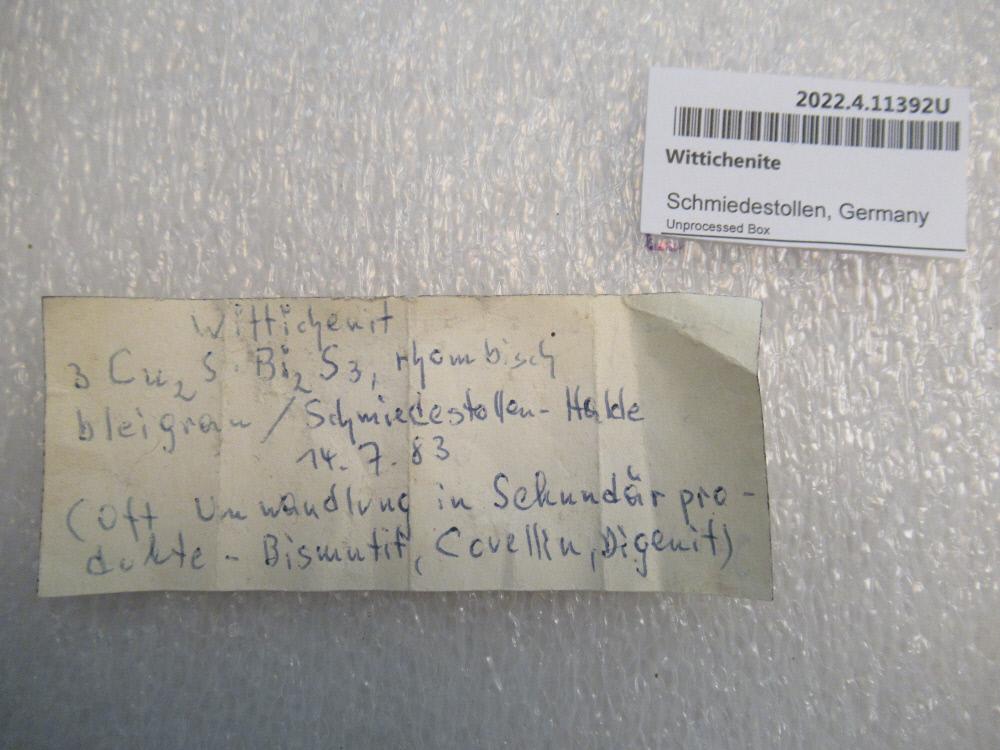 2022.4.11392U
Wittichenite
Schmiedestollen, Germany
Unprocessed Box
Wittichenit
3 Cu₂S·Bi₂S3, rhombisch
bleigrau / Schmiedestollen-Halde
14.7.83
(Oft Umwandlung in Sekundärpro-
dukte - Bismutit, Covellin, Digenit)